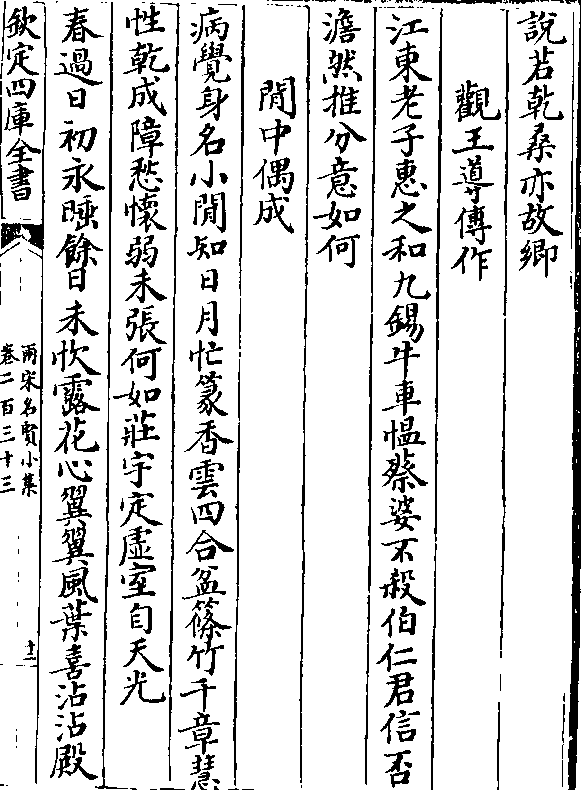 說若乾桑亦故鄉
觀王導傳作
江東老子惠之和九錫牛車愠蔡婆不殺伯仁君信否
澹然推分意如何
閒中偶成
病覺身名小閒知日月忙篆香雲四合盆篠竹千章慧
性乾成障愁懷弱未張何如莊宇定虛室自天光
春過日初永睡餘日未忺露花心翼翼風葉喜沾沾殿
欽定四庫全書
兩宋名賢小集
卷二百三十三
十二